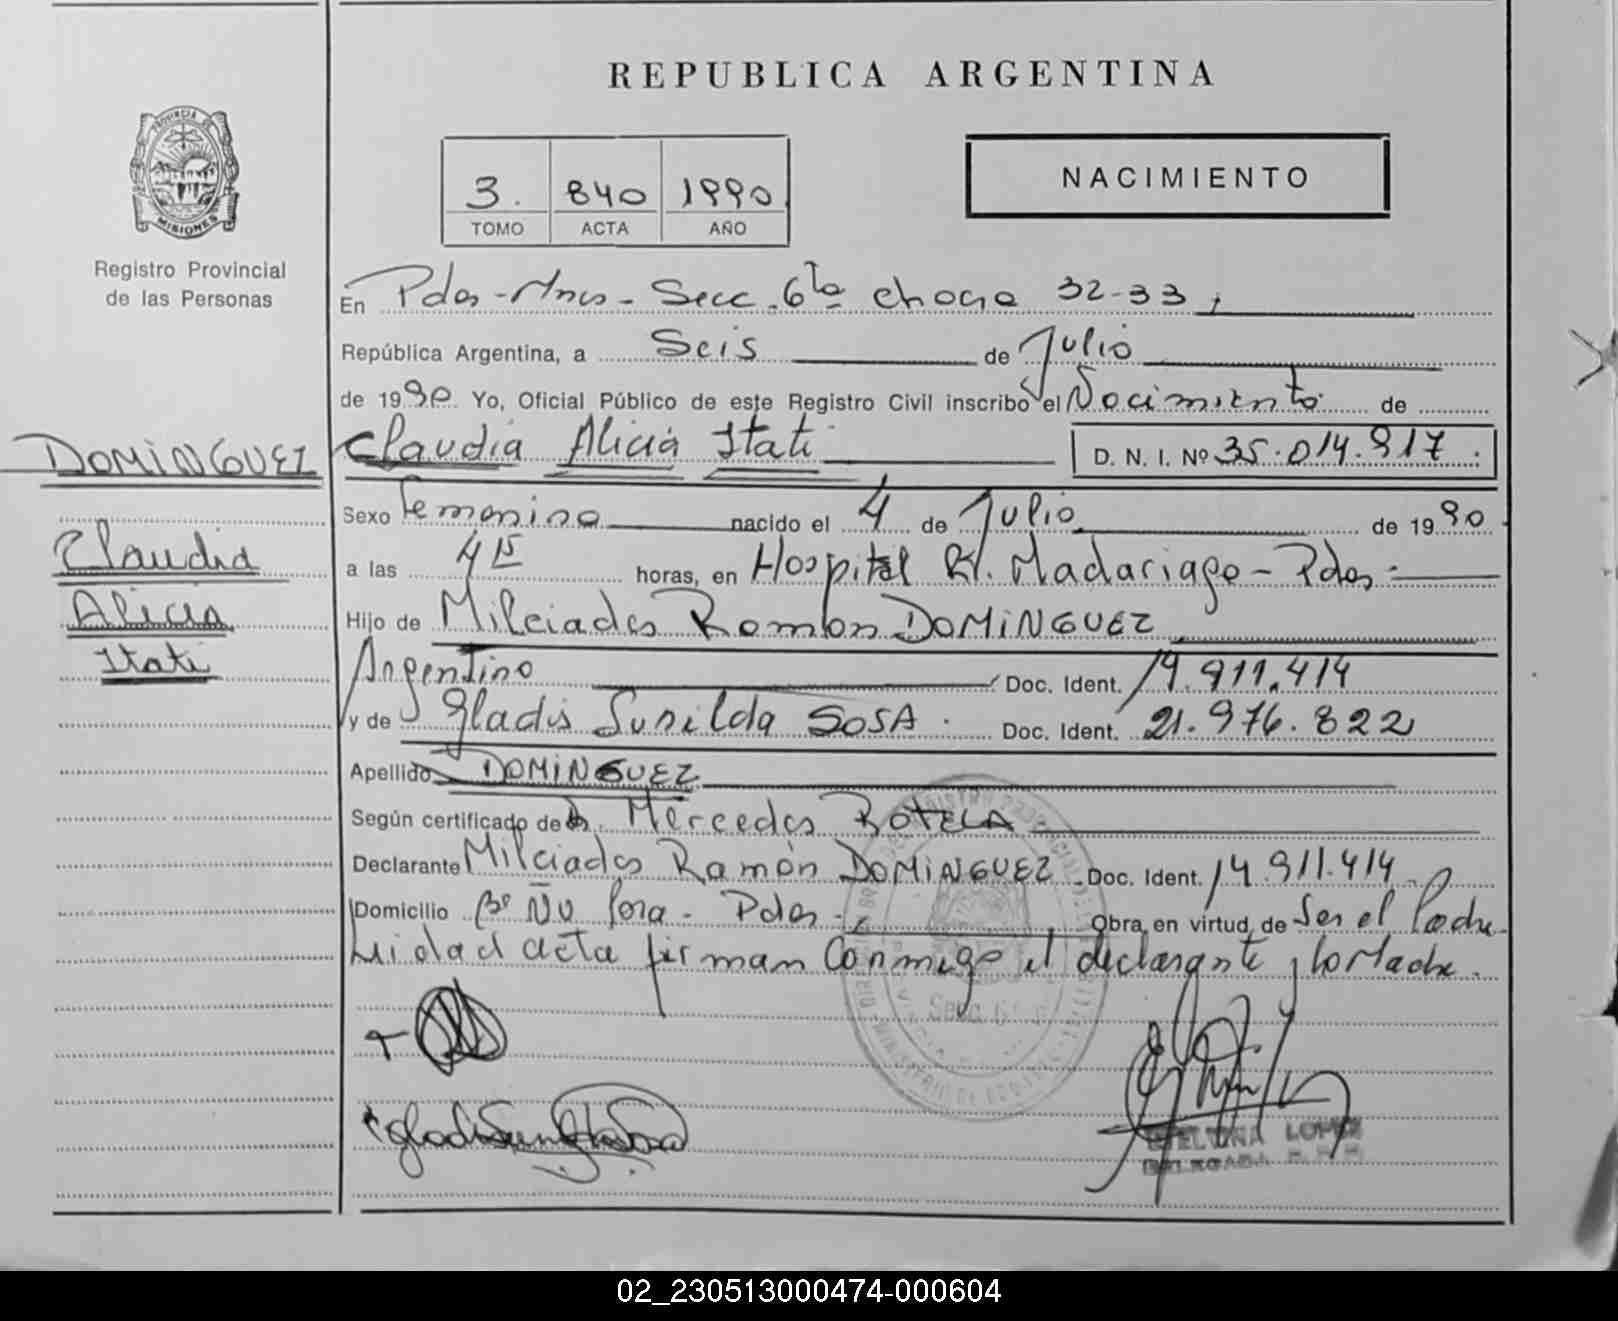 REPUBLICA ARGENTINA
PROVINCIA DE
MISIONES
Registro Provincial
de las Personas
NACIMIENTO
3. 840 1990
TOMO ACTA AÑO
En Pdas - Mnes - Secc. 6ta chacra 32-33,
República Argentina, a Seis de Julio
de 1990 Yo, Oficial Público de este Registro Civil inscribo el Nacimiento de
DOMINGUEZ
Claudia Alicia Itati
D. N. I. Nº 35.014.917.
Sexo Femenino nacido el 4 de Julio de 1990
Claudia
Alicia
Itati
a las 4 15 horas, en Hospital R. Madariaga - Pdas.
Hijo de Milciades Ramon DOMINGUEZ
Argentino Doc. Ident. 14.911.414
y de Gladis Sunilda SOSA. Doc. Ident. 21.976.822
Apellido DOMINGUEZ
Según certificado de Mercedes ROTELA
Declarante Milciades Ramón DOMINGUEZ Doc. Ident. 14.911.414
Domicilio Bº Ñu Pora - Pdas. Obra en virtud de Ser el Padre
Leida el acta firman Conmigo el declarante y la Madre.
LOPEZ
02_230513000474-000604